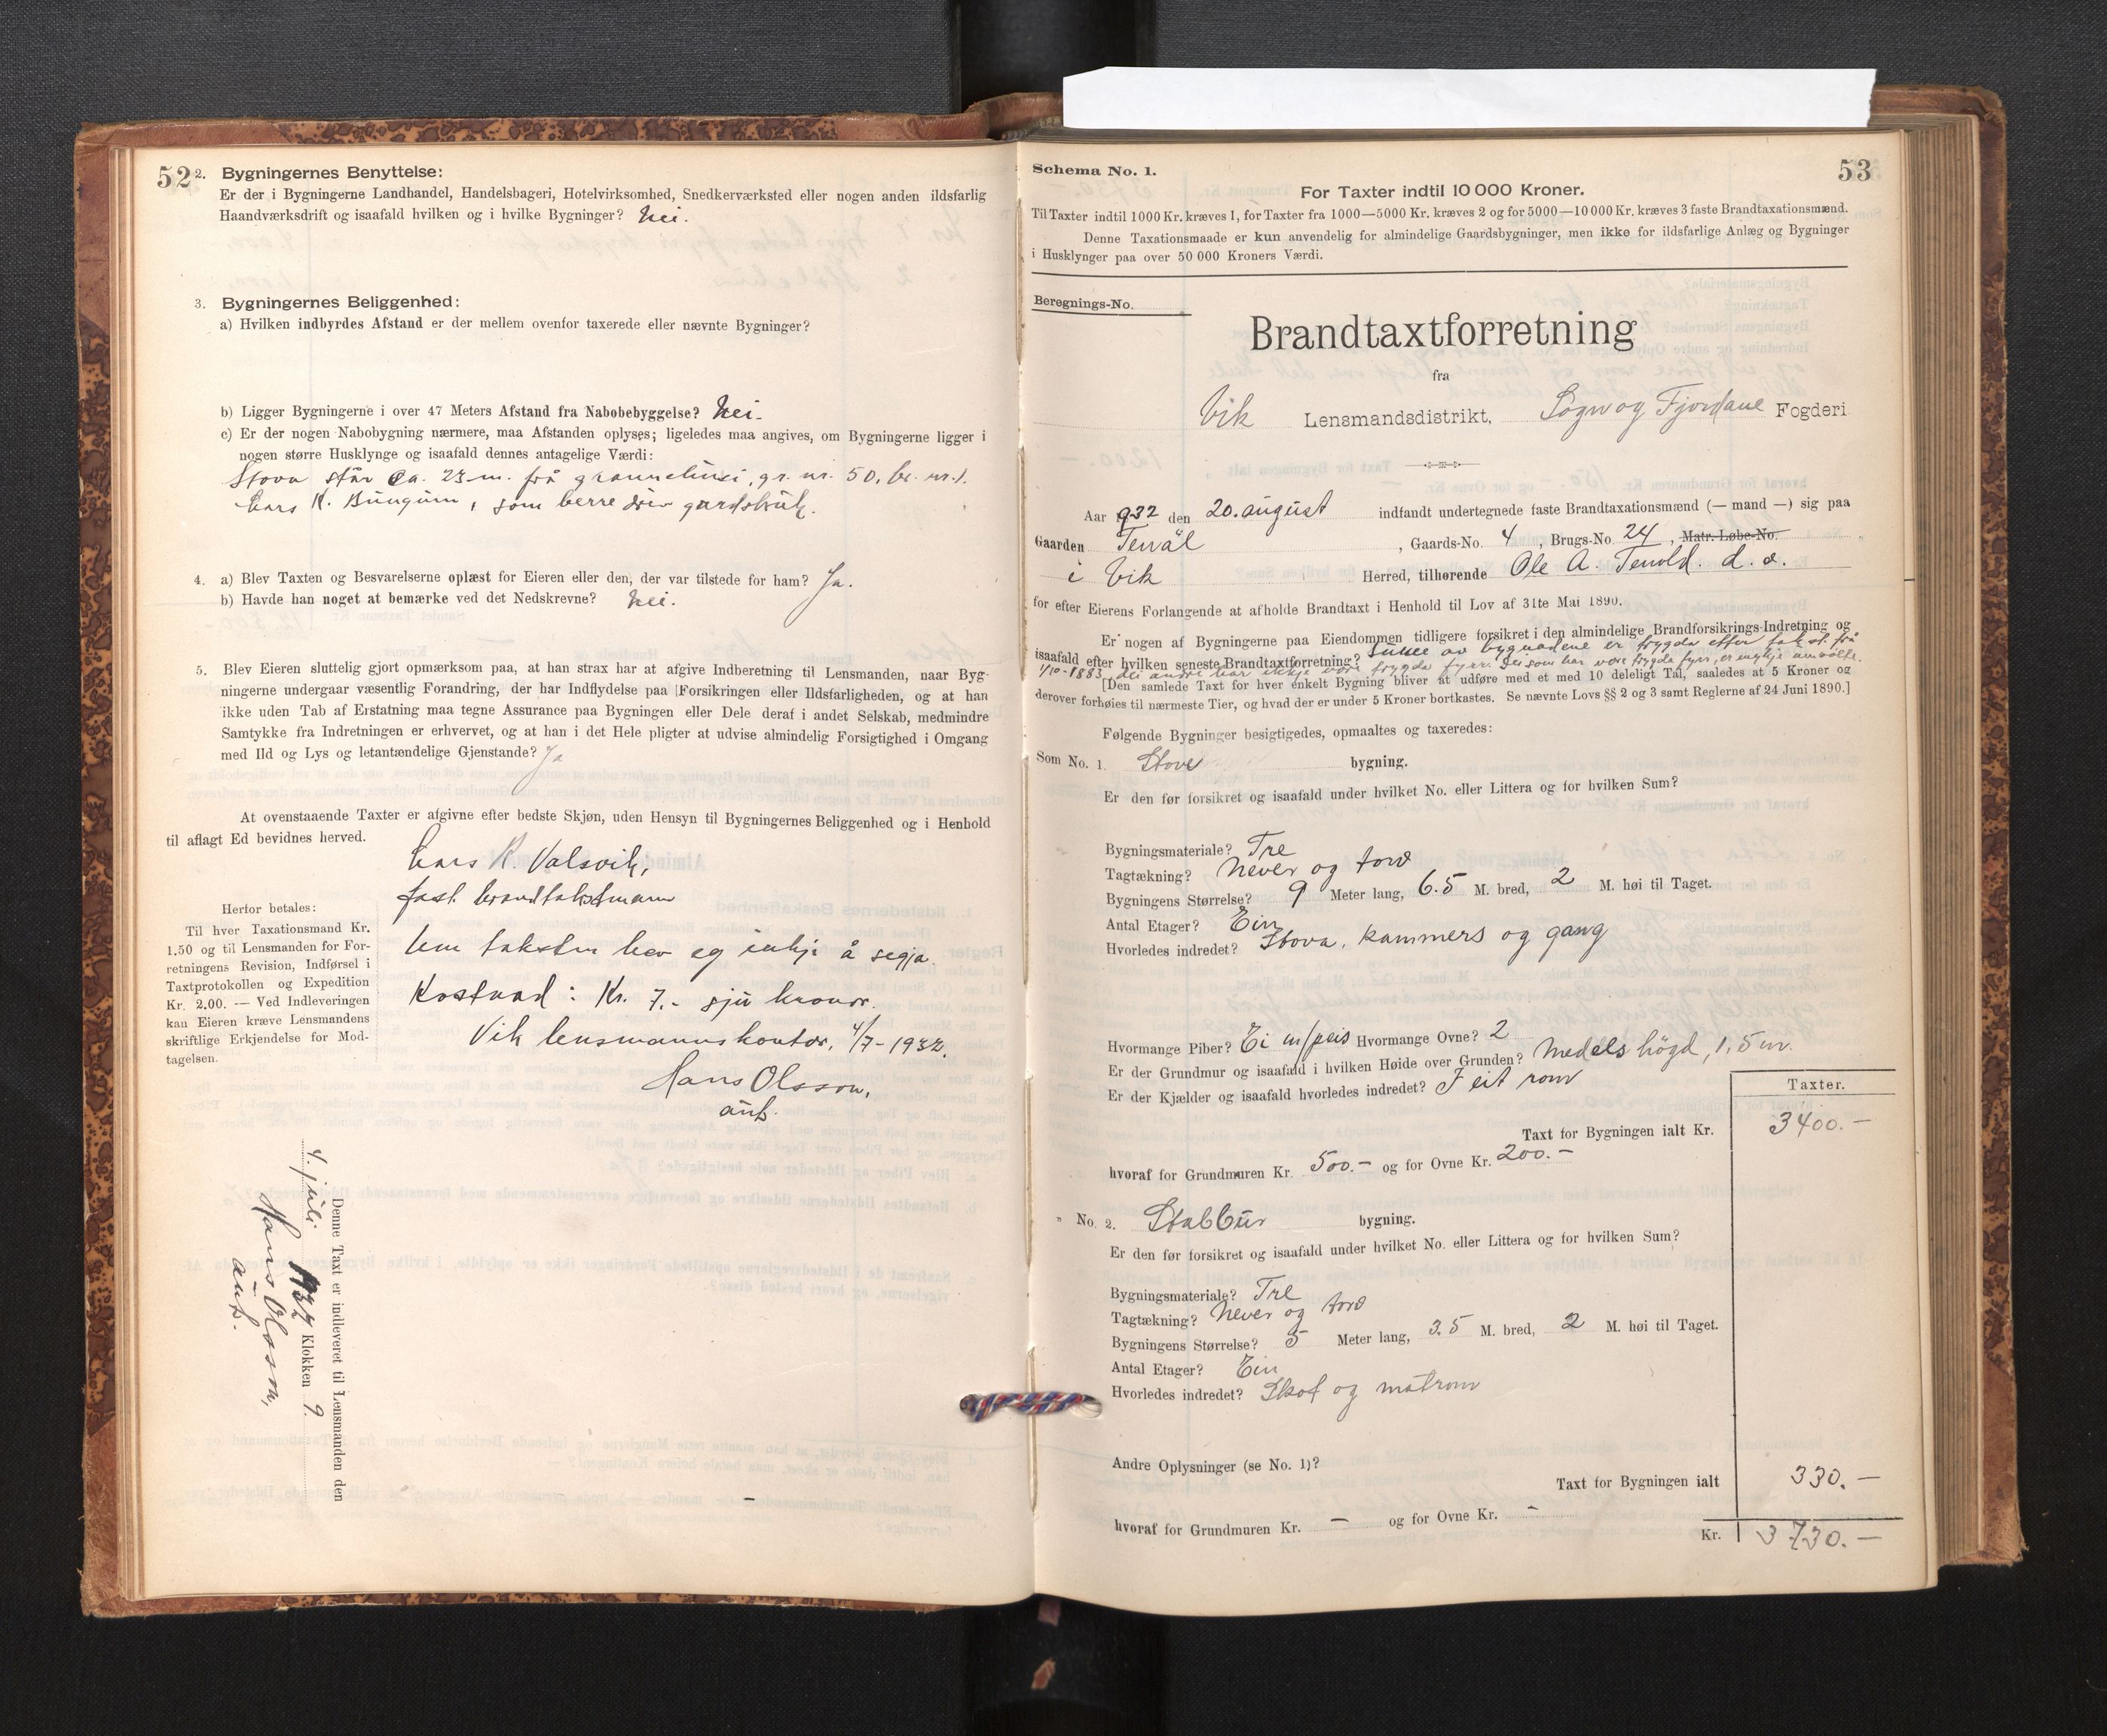 52
2. Bygningernes Benyttelse:
Er der i Bygningerne Landhandel, Handelsbageri, Hotelvirksomhed, Snedkerværksted eller nogen anden ildsfarlig
Haandværksdrift og isaafald hvilken og i hvilke Bygninger? Nei.
3. Bygningernes Beliggenhed:
a) Hvilken indbyrdes Afstand er der mellem ovenfor taxerede eller nævnte Bygninger?
b) Ligger Bygningerne i over 47 Meters Afstand fra Nabobebyggelse? Nei.
c) Er der nogen Nabobygning nærmere, maa Afstanden oplyses; ligeledes maa angives, om Bygningerne ligger i
nogen større Husklynge og isaafald dennes antagelige Værdi:
Stova står ca. 23 m. frå grannehusi, gr. nr. 50, br. nr. 1.
Lars K. Bungum, som berre driv gardsbruk.
4. a) Blev Taxten og Besvarelserne oplæst for Eieren eller den, der var tilstede for ham? Ja.
b) Havde han noget at bemærke ved det Nedskrevne? Nei.
5. Blev Eieren sluttelig gjort opmærksom paa, at han strax har at afgive Indberetning til Lensmanden, naar Byg-
ningerne undergaar væsentlig Forandring, der har Indflydelse paa Forsikringen eller Ildsfarligheden, og at han
ikke uden Tab af Erstatning maa tegne Assurance paa Bygningen eller Dele deraf i andet Selskab, medmindre
Samtykke fra Indretningen er erhvervet, og at han i det Hele pligter at udvise almindelig Forsigtighed i Omgang
med Ild og Lys og letantændelige Gjenstande? Ja
At ovenstaaende Taxter er afgivne efter bedste Skjøn, uden Hensyn til Bygningernes Beliggenhed og i Henhold
til aflagt Ed bevidnes herved.
Lars K. Valsvik,
fast brandtakstmann
Herfor betales:
Til hver Taxationsmand Kr.
1.50 og til Lensmanden for For-
retningens Revision, Indførsel i
Taxtprotokollen og Expedition
Kr. 2.00. — Ved Indleveringen
kan Eieren kræve Lensmandens
skriftlige Erkjendelse for Mod-
tagelsen.
Um taksten hev eg inkji å segja.
Kostnad: Kr. 7.- sju kronor.
Vik lensmannskontor, 4/7-1932.
Hans Olsson,
aut.
Denne Taxt er indleveret til Lensmanden den
4. juli 1932 Klokken 9.
Hans Olsson,
aut.
53
Schema No. 1.
For Taxter indtil 10 000 Kroner.
Til Taxter indtil 1000 Kr. kræves 1, for Taxter fra 1000—5000 Kr. kræves 2 og for 5000—10 000 Kr. kræves 3 faste Brandtaxationsmænd.
Denne Taxationsmaade er kun anvendelig for almindelige Gaardsbygninger, men ikke for ildsfarlige Anlæg og Bygninger
i Husklynger paa over 50 000 Kroners Værdi.
Beregnings-No.
Brandtaxtforretning
fra
Vik Lensmandsdistrikt, Sogn og Fjordane Fogderi
Aar 1932 den 20. august indfandt undertegnede faste Brandtaxationsmænd (— mand —) sig paa
Gaarden , Gaards-No. 4 , Brugs-No. 24 , Matr. Løbe-No.
i Vik Herred, tilhørende Ole A. Tenold. d. e.
for efter Eierens Forlangende at afholde Brandtaxt i Henhold til Lov af 31te Mai 1890.
Er nogen af Bygningerne paa Eiendommen tidligere forsikret i den almindelige Brandforsikrings-Indretning og
isaafald efter hvilken seneste Brandtaxtforretning? Sume av bygnadene er trygda etter takst frå
1/10-1883, dei andre har ikkje vore trygda fyrr. Dei som har vore trygda fyrr, er mykje umvølte.
[Den samlede Taxt for hver enkelt Bygning bliver at udføre med et med 10 deleligt Tal, saaledes at 5 Kroner og
derover forhøies til nærmeste Tier, og hvad der er under 5 Kroner bortkastes. Se nævnte Lovs §§ 2 og 3 samt Reglerne af 24 Juni 1890.]
Følgende Bygninger besigtigedes, opmaaltes og taxeredes:
Som No. 1. Stove bygning.
Er den før forsikret og isaafald under hvilket No. eller Littera og for hvilken Sum?
Bygningsmateriale? Tre
Tagtækning? Never og torv
Bygningens Størrelse? 9 Meter lang, 6.5 M. bred, 2 M. høi til Taget.
Antal Etager? Ein
Hvorledes indredet? Stova, kammers og gang
Hvormange Piber? Ei m/peis Hvormange Ovne? 2
Er der Grundmur og isaafald i hvilken Høide over Grunden? Medels högd, 1,5 m.
Er der Kjælder og isaafald hvorledes indredet? I eit rom
Taxter.
Taxt for Bygningen ialt Kr. 3400.—
hvoraf for Grundmuren Kr. 500.— og for Ovne Kr. 200.—
" No. 2. Stabbur bygning.
Er den før forsikret og isaafald under hvilket No. eller Littera og for hvilken Sum?
Bygningsmateriale? Tre
Tagtækning? Never og torv
Bygningens Størrelse? 5 Meter lang, 3.5 M. bred, 2 M. høi til Taget.
Antal Etager? Ein
Hvorledes indredet? Skot og matrom
Andre Oplysninger (se No. 1)?
Taxt for Bygningen ialt 330.—
hvoraf for Grundmuren Kr. — og for Ovne Kr. —
Kr. 3730.—